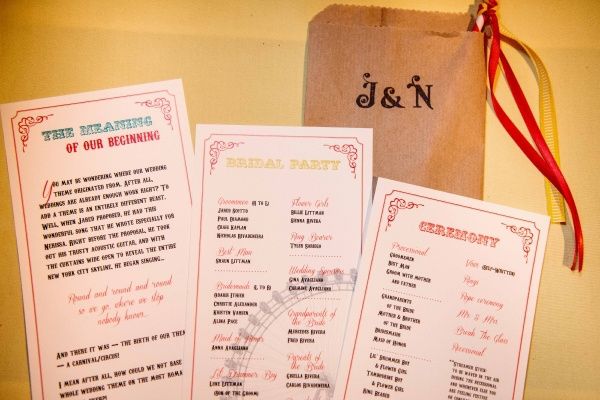 J & N
THE MEANING
OF OUR BEGINNING
YOU MAY BE WONDERING WHERE OUR WEDDING
THEME ORIGINATED FROM. AFTER ALL,
WEDDINGS ARE ALREADY ENOUGH WORK RIGHT? TO
ADD A THEME IS AN ENTIRELY DIFFERENT BEAST.
WELL, WHEN JARED PROPOSED, HE HAD THIS
WONDERFUL SONG THAT HE WROTE ESPECIALLY FOR
NERISSA. RIGHT BEFORE THE PROPOSAL, HE TOOK
OUT HIS TRUSTY ACOUSTIC GUITAR, AND WITH
THE CURTAINS WIDE OPEN TO REVEAL THE ENTIRE
NEW YORK CITY SKYLINE, HE BEGAN SINGING...
Round and round and round
so we go where we stop
nobody knows...
AND THERE IT WAS — THE BIRTH OF OUR THEM
— A CARNIVAL/CIRCUS!
I MEAN AFTER ALL, HOW COULD WE NOT BASE
WHOLE WEDDING THEME ON THE MOST ROMA
BRIDAL PARTY
Groomsmen (L TO R)
JARED SCOTTO
PHIL BRAMAND
CRAIG KAPLAN
NICHOLAS RIVADENEIRA
Best Man
SHAUN LITTMAN
Bridesmaids (L TO R)
ROARIE FISHER
CHRISTIE ALEXANDER
KRISTEN VARSEN
ALINA PACE
Maid of Honor
ANNA AVAGLIANO
Lil' Drummer Boy
LUKE LITTMAN
(SON OF THE GROOM)
Flower Girls
BILLIE LITTMAN
SIENNA RIVERA
Ring Bearer
TYLER SORDISH
Wedding Sponsors
GINA AVAGLIANO
CARMINE AVAGLIANO
Grandparents of
the Bride
MERCEDES RIVERA
FRED RIVERA
Parents of
the Bride
GRISELLA RIVERA
CARLOS RIVADENEIRA
CEREMONY
Processional
GROOMSMEN
BEST MAN
GROOM WITH MOTHER
AND FATHER
GRANDPARENTS
OF THE BRIDE
MOTHER & BROTHER
OF THE BRIDE
BRIDESMAIDS
MAID OF HONOR
LIL' DRUMMER BOY
& FLOWER GIRL
TAMBOURINE BOY
& FLOWER GIRL
RING BEARER
Vows (SELF-WRITTEN)
Rings
Rope ceremony
Mr. & Mrs.
Break The Glass
Recessional
**STREAMER STICK
TO BE WAVED IN THE AIR
DURING THE RECESSIONAL
AND WHENEVER ELSE YOU